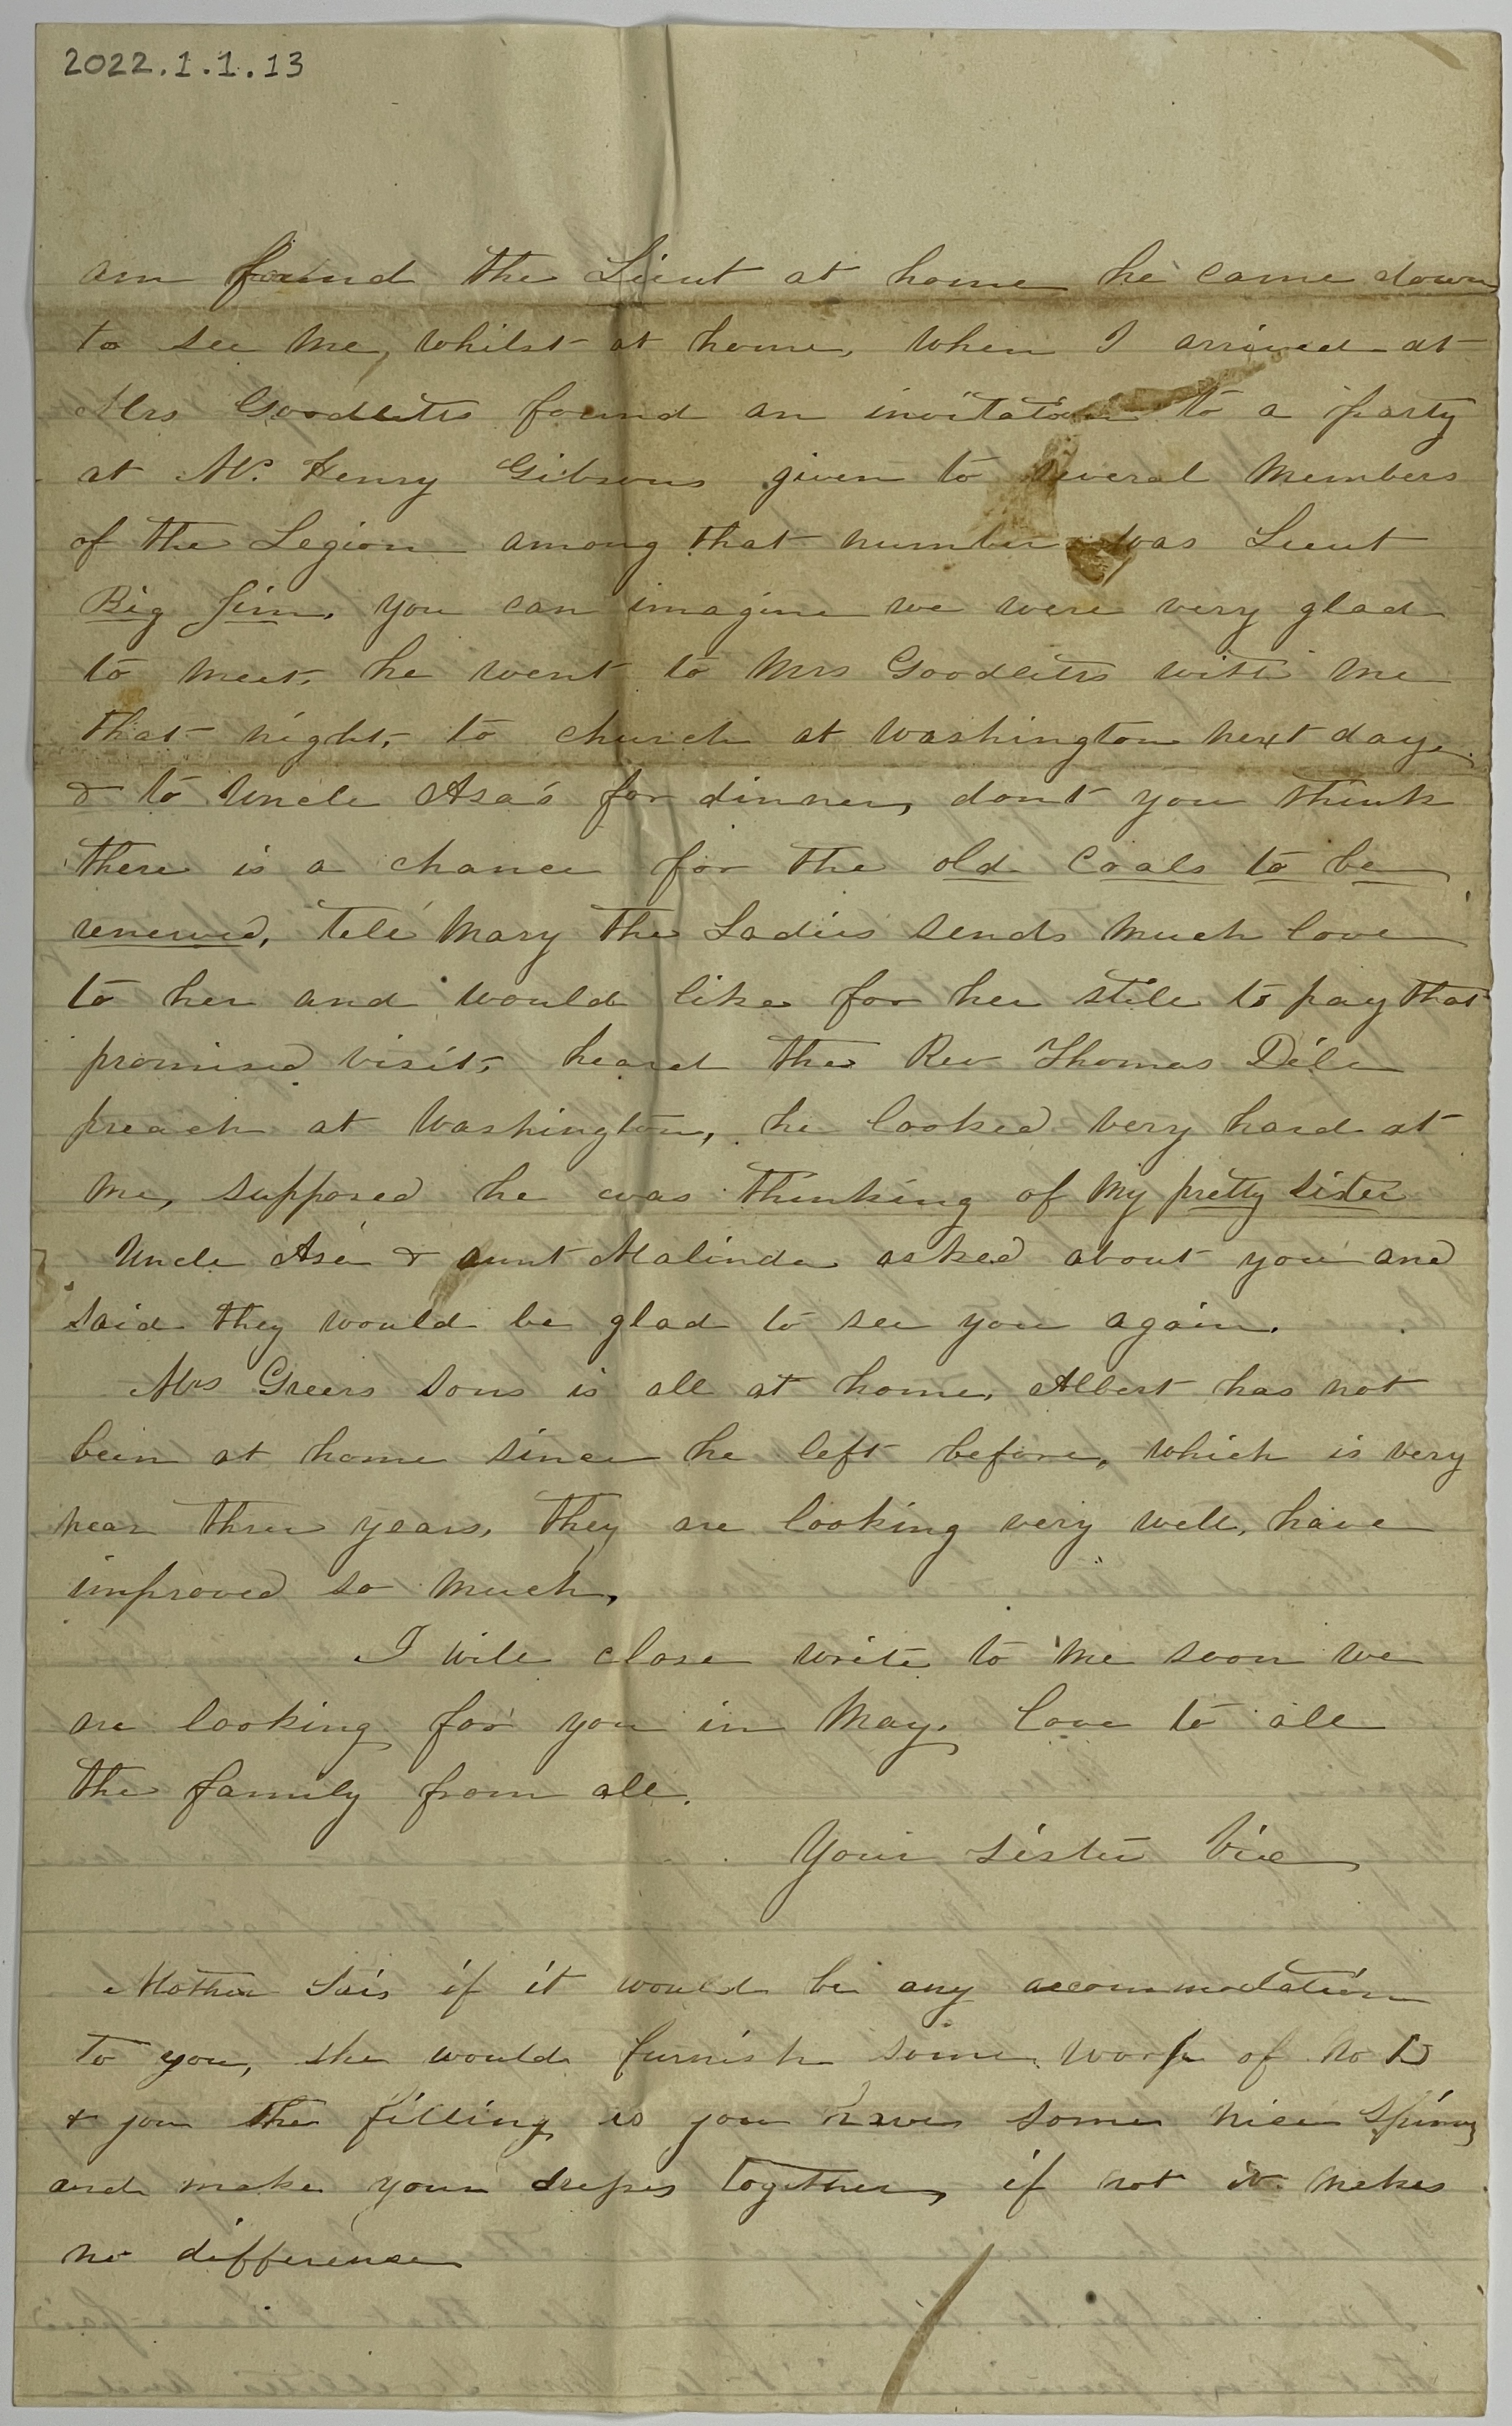 2022.1.1.13
am found the Lieut at home he came down
to see me, whilst at home, when I arrived at
Mrs Goodletts found an invitation to a party
at Mr. Henry Gibsons given to several members
of the Legion among that number was Lieut
Big Jim, you can imagine we were very glad
to meet, he went to Mrs Goodletts with me
that night, to church at Washington next day,
& to Uncle Asa's for dinner, dont you think
there is a chance for the old coals to be
renewed, tell Mary the Ladies sends much love
to her and would like for her still to pay that
promised visit, heard the Rev Thomas Dill
preach at Washington, he looked very hard at
me, supposed he was thinking of my pretty sister
Uncle Asa & aunt Malinda asked about you and
said they would be glad to see you again.
Mrs Greers sons is all at home, Albert has not
been at home since he left before, which is very
near three years, they are looking very well, have
improved so much,
I will close write to me soon we
are looking for you in May. love to all
the family from all.
Your sister Vic
Mother sais if it would be any accommodation
to you, she would furnish some warp of No 12
& you the filling as you have some nice
and make your dresses together, if not it makes
no difference